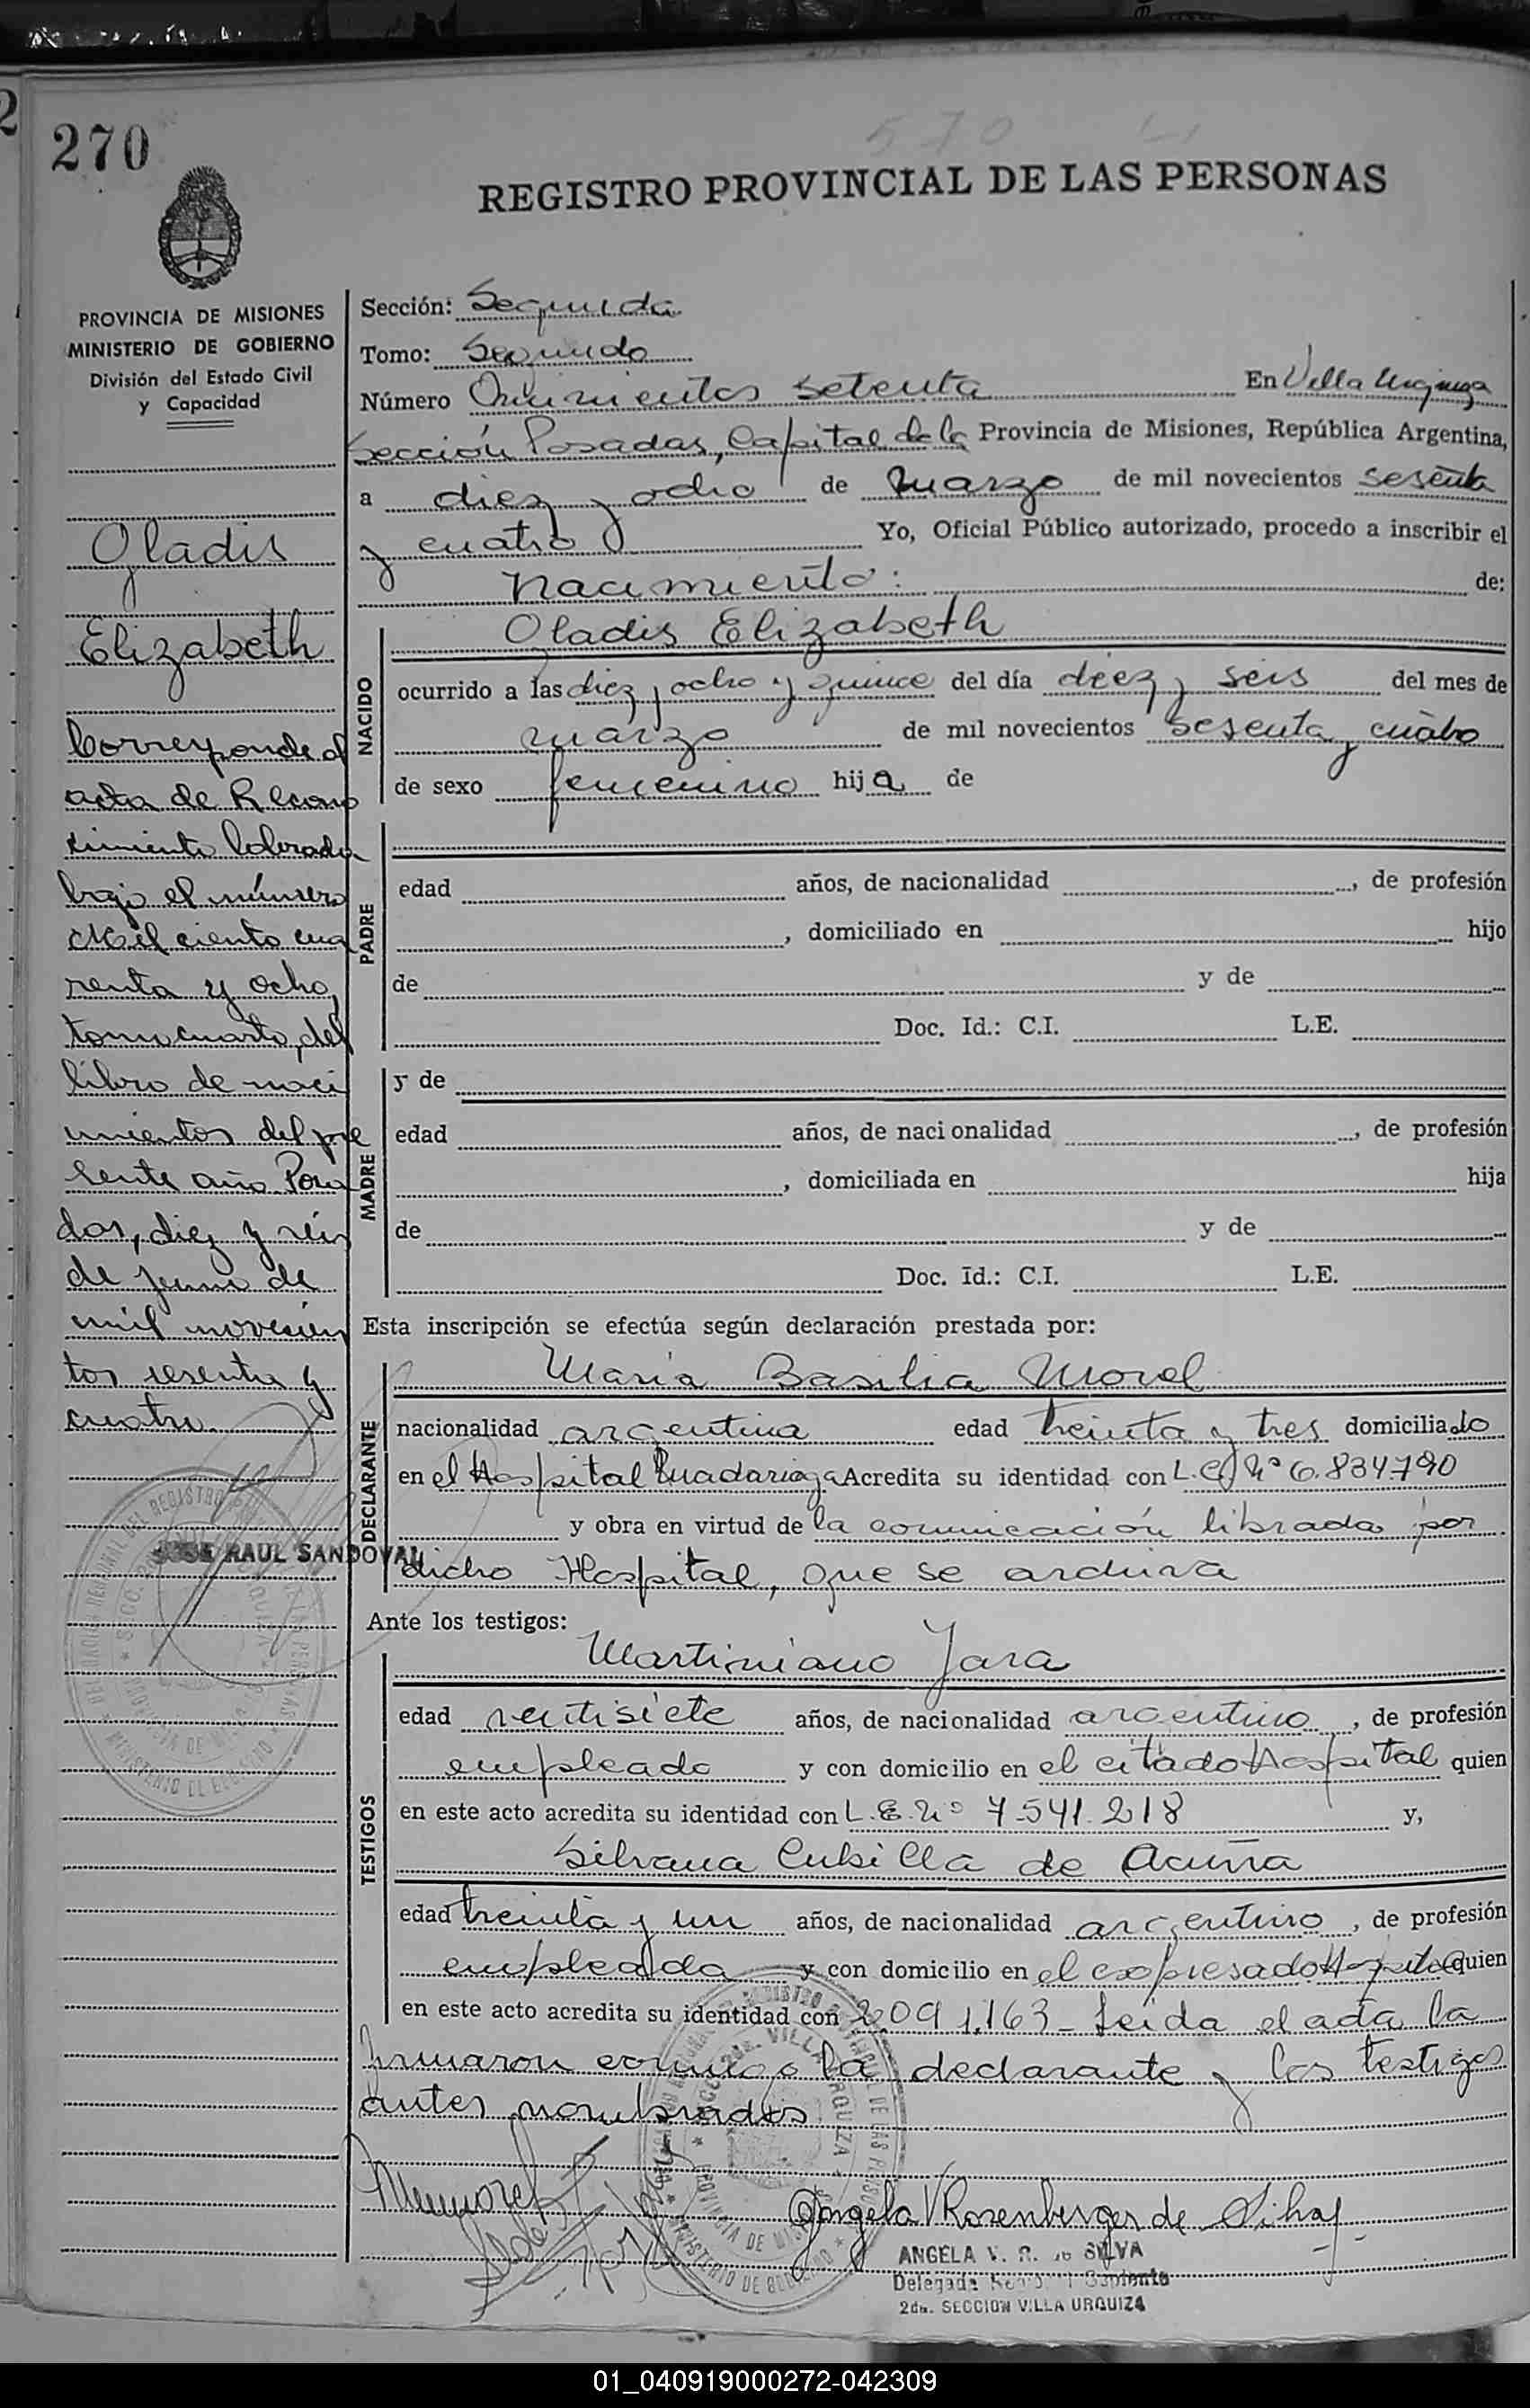 270
570
REGISTRO PROVINCIAL DE LAS PERSONAS
PROVINCIA DE MISIONES
MINISTERIO DE GOBIERNO
División del Estado Civil
y Capacidad
Gladis
Elizabeth
Corresponde al
acta de Recono
cimiento labrada
bajo el número
Mil ciento cua
renta y ocho,
tomo cuarto, del
libro de naci
mientos del pre
sente año. Posa
das, diez y seis
de junio de
mil novecien
tos sesenta y
cuatro.
JOSE RAUL SANDOVAL
Sección: Segunda
Tomo: Segundo
Número Quinientos setenta En Villa Urquiza
Sección Posadas, Capital de la Provincia de Misiones, República Argentina,
a diez y ocho de marzo de mil novecientos sesenta
y cuatro Yo, Oficial Público autorizado, procedo a inscribir el
nacimiento: de:
NACIDO
Gladis Elizabeth
ocurrido a las diez y ocho y quince del día diez y seis del mes de
marzo de mil novecientos sesenta y cuatro
de sexo femenino hija de
PADRE
edad años, de nacionalidad , de profesión
, domiciliado en hijo
de y de
Doc. Id.: C.I. L.E.
MADRE
y de
edad años, de naci onalidad , de profesión
, domiciliada en hija
de y de
Doc. Id.: C.I. L.E.
Esta inscripción se efectúa según declaración prestada por:
DECLARANTE
Maria Basilia Morel
nacionalidad argentina edad treinta y tres domiciliado
en el Hospital Madariaga Acredita su identidad con L.C. Nº 6.834790
y obra en virtud de la comunicación librada por
dicho Hospital, que se archiva
Ante los testigos:
TESTIGOS
Martiniano Jara
edad ventisiete años, de nacionalidad argentino, de profesión
empleado y con domicilio en el citado Hospital quien
en este acto acredita su identidad con L.E. Nº 7.541.218 y,
Silvana Cubilla de Acuña
edad treinta y un años, de nacionalidad argentino, de profesión
empleada y con domicilio en el expresado Hospital quien
en este acto acredita su identidad con 2.091.163_ Leida el acta la
firmaron conmigo la declarante y los testigos
antes nombrados
Angela V Rosenberger de Silva
ANGELA V. R. de SILVA
Delegada
2da. SECCION VILLA URQUIZA
01_040919000272-042309